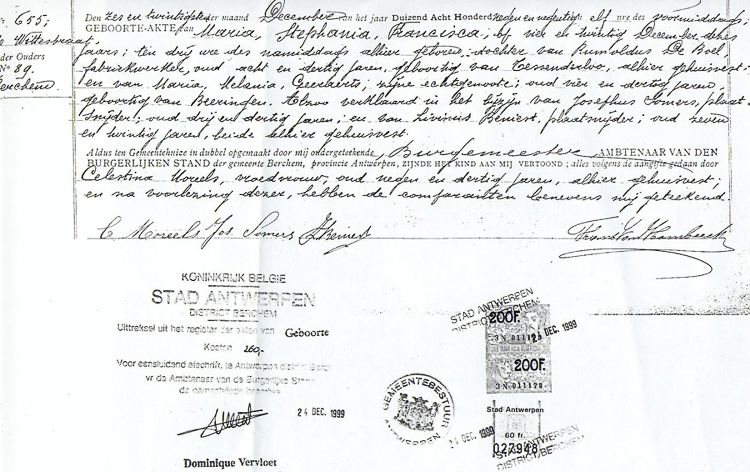 655.
Wetterstraat,
der Ouders
N° 89.
erchem
Den zes en twintigsten der maand December van het jaar Duizend Acht Honderd negen en negentig elf ure des voormiddags;
GEBOORTE-AKTE van Maria, Stephania, Francisca; bij vier en twintig December dezes
jaars; ten drij ure des namiddags alhier geboren; dochter van Rumoldus De Boel,
fabriekwerker, oud acht en dertig jaren, geboortig van Tessenderloo, alhier gehuisvest;
en van Maria, Melania, Geeraerts; zijne echtgenoote; oud vier en dertig jaren
geboortig van Beeringen. Alzoo verklaard in het bijzijn van Josephus Somers, plaat
snijder; oud drij en dertig jaren; en van Livinus Beniest, plaatsnijder; oud zeven
en twintig jaren, beide alhier gehuisvest.
Aldus ten Gemeentehuize in dubbel opgemaakt door mij ondergeteekende, Burgemeester, AMBTENAAR VAN DEN
BURGERLIJKEN STAND der gemeente Berchem, provincie Antwerpen, ZIJNDE HET KIND AAN MIJ VERTOOND; alles volgens de aangifte gedaan door
Celestina Moreels, vroedvrouw, oud negen en dertig jaren, alhier gehuisvest;
en na voorlezing dezer, hebben de comparanten benevens mij geteekend.
C Moreels Jos Somers
KONINKRIJK BELGIE
STAD ANTWERPEN
DISTRICT BERCHEM
Uittreksel uit het register der akten van Geboorte
Kosten 260,-
Voor eensluidend afschrift, te Antwerpen district Berchem
de Ambtenaar van de Burgerlijke Stand
24 DEC. 1999
Dominique Vervloet
GEMEENTEBESTUUR
ANTWERPEN
24 DEC. 1999
STAD ANTWERPEN
DISTRICT BERCHEM
200F.
24 DEC. 1999
200F.
3N 011179
Stad Antwerpen
60 fr.
027948
STAD ANTWERPEN
DISTRICT BERCHEM